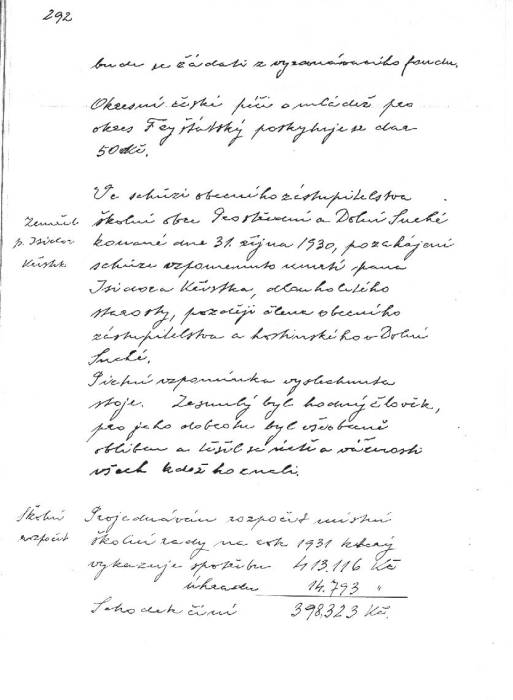 292
bude se žádati z vyrovnávacího fondu.
Okresní české péči o mládež pro
okres Fryštátský poskytuje se dar
50 Kč.
Ve schůzi obecního zastupitelstva
Zemřel
p. Isidor
Křístek
školní obce Prostřední a Dolní Suché
konané dne 31. října 1930, po zahájení
schůze vzpomenuto úmrtí pana
Isidora Křístka, dlouholetého
starosty, později člena obecního
zastupitelstva a hostinského v Dolní
Suché.
vzpomínka vyslechnuta
stoje. Zesnulý byl hodný člověk,
pro jeho dobrotu byl všeobecně
oblíben a těšil se úctě a vážnosti
všech kdož ho znali.
Školní
rozpočet
Projednáván rozpočet místní
školní rady na rok 1931 který
vykazuje spotřebu 413.116 Kč
úhradu 14.793 "
Schodek činí 398.323 Kč.